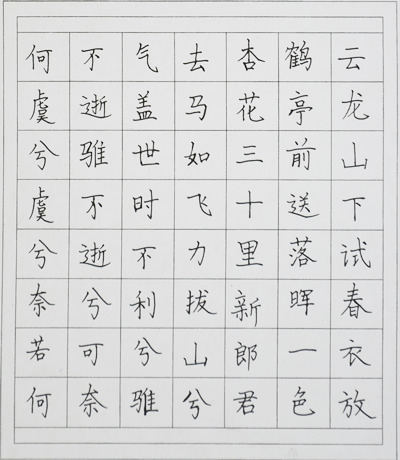 云龙山下试春衣放
鹤亭前送落晖一色
杏花三十里新郎君
去马如飞力拔山兮
气盖世时不利兮骓
不逝骓不逝兮可奈
何虞兮虞兮奈若何